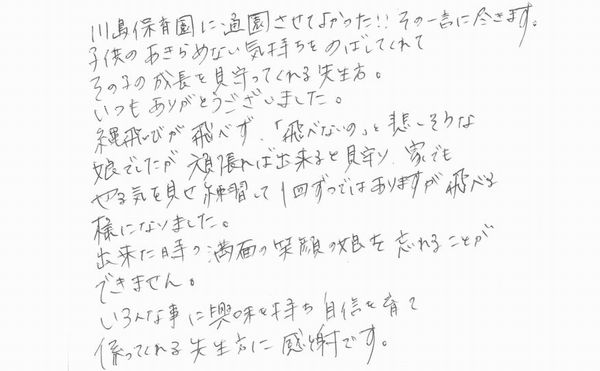 川島保育園に通園させてよかった!!その一言に尽きます。
子供のあきらめない気持ちをのばしてくれて
その子の成長を見守ってくれる先生方。
いつもありがとうございました。
縄飛びが飛べず、「飛べないの」と悲しそうな
娘でしたが頑張れば出来ると見守り、家でも
やる気を見せ練習して1回ずつではありますが飛べる
様になりました。
出来た時の満面の笑顔の娘を忘れることが
できません。
いろんな事に興味を持ち自信を育て
係ってくれる先生方に感謝です。